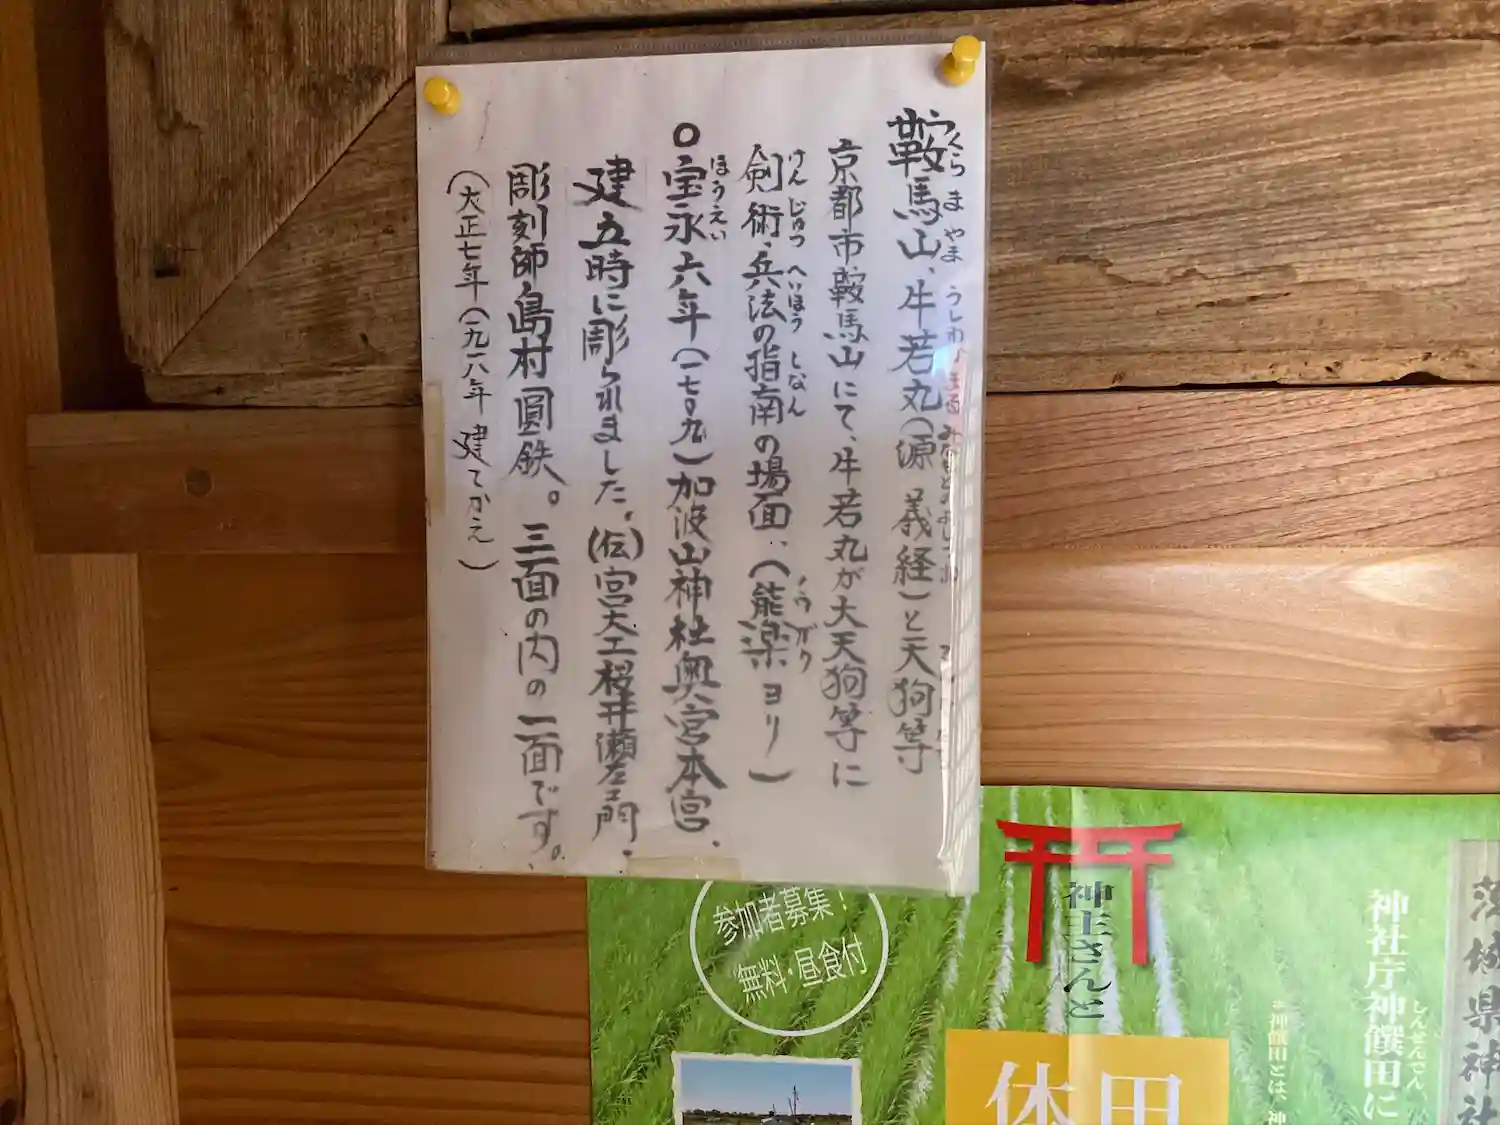 鞍馬山、牛若丸(源 義経)と天狗等
くら ま やま
京都市鞍馬山にて、牛若丸が大天狗等に
剣術、兵法の指南の場面、(能楽ヨリ)
けん じゅつ へいほう しなん のう がく
○宝永六年(一七〇九)加波山神社奥宮本宮、
ほうえい
建立時に彫られました。(伝)宮大工桜井瀬左エ門、
彫刻師島村圓鉄。三面の内の一面です。
(大正七年(一九一八年 建てかえ)
参加者募集!
無料・昼食付
神主さんと
神社庁神饌田に
しんせんでん
※神饌田とは、神
茨城県神社
田
体